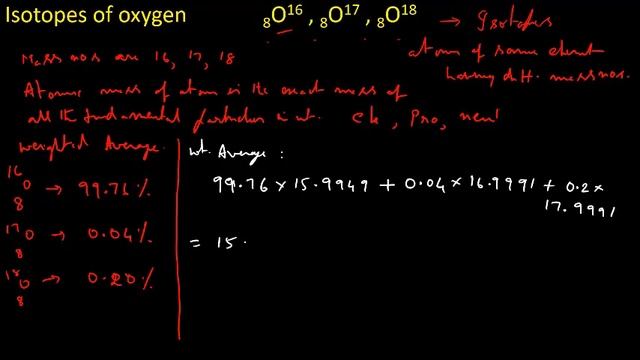 Isotopes of oxygen ₈O¹⁶ , ₈O¹⁷ , ₈O¹⁸ → Isotopes
atom of same
having diff. mass nos.
Mass nos are 16, 17, 18
Atomic mass of atom is the exact mass of
all the fundamental particles in it. ele, Pro, neut
weighted Average.
¹⁶₈O → 99.76%
¹⁷₈O → 0.04%
¹⁸₈O → 0.20%
wt. Average :
99.76 × 15.9949 + 0.04 × 16.9991 + 0.2 ×
17.9991
= 15.